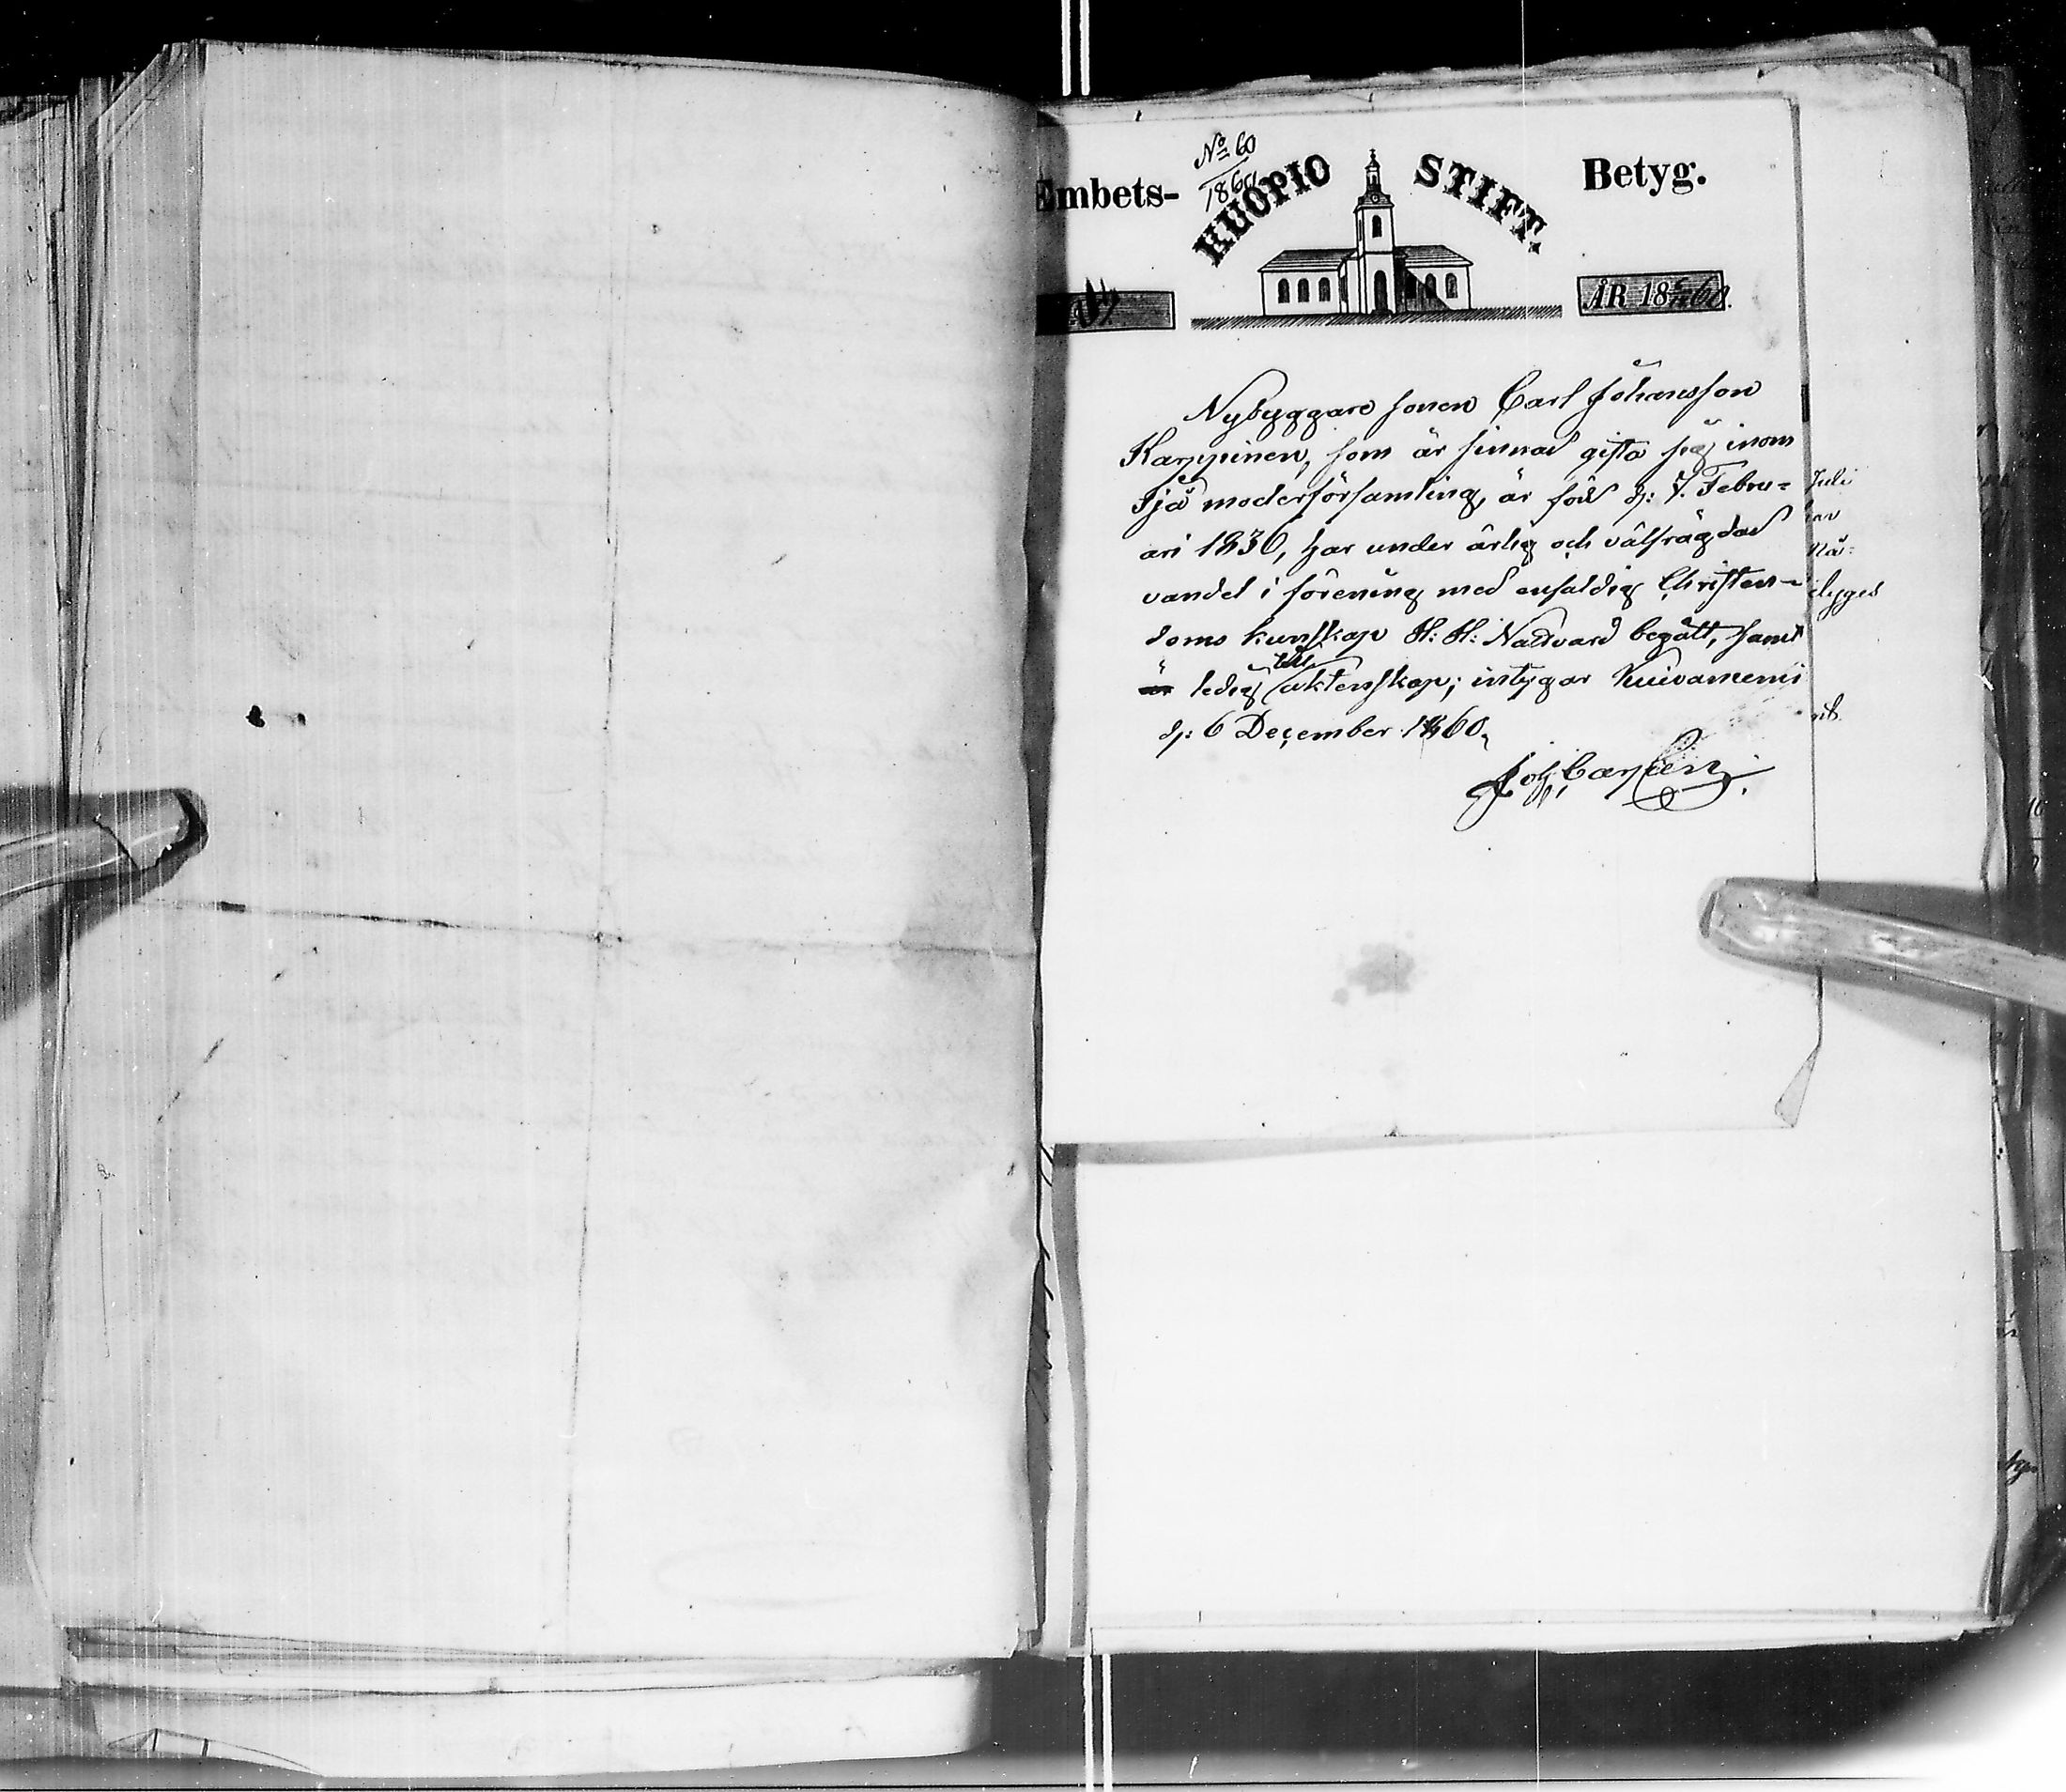 No 60
1860
Embets-
KUOPIO STIFT.
Betyg.
ÅR 1860.
Nybyggare sonen Carl Johansson
Karppinen, som är sinnad gifta sig inom
Ijå moderförsamling, är född d: 7. Febru-
ari 1836, har under ärlig och välfrägdad
vandel i förening med enfaldig Christen-
doms kunskap H: H: Nattvard begått, samt
är ledig till äktenskap; intygar Kuivaniemi
d: 6 December 1860.
Joh,
Juli
Nä-